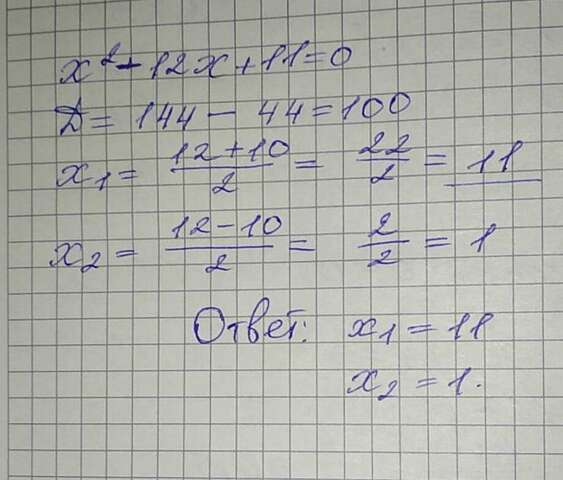 x² - 12x + 11 = 0
D = 144 - 44 = 100
x₁ = (12 + 10)/2 = 22/2 = 11
x₂ = (12 - 10)/2 = 2/2 = 1
Ответ: x₁ = 11
x₂ = 1.